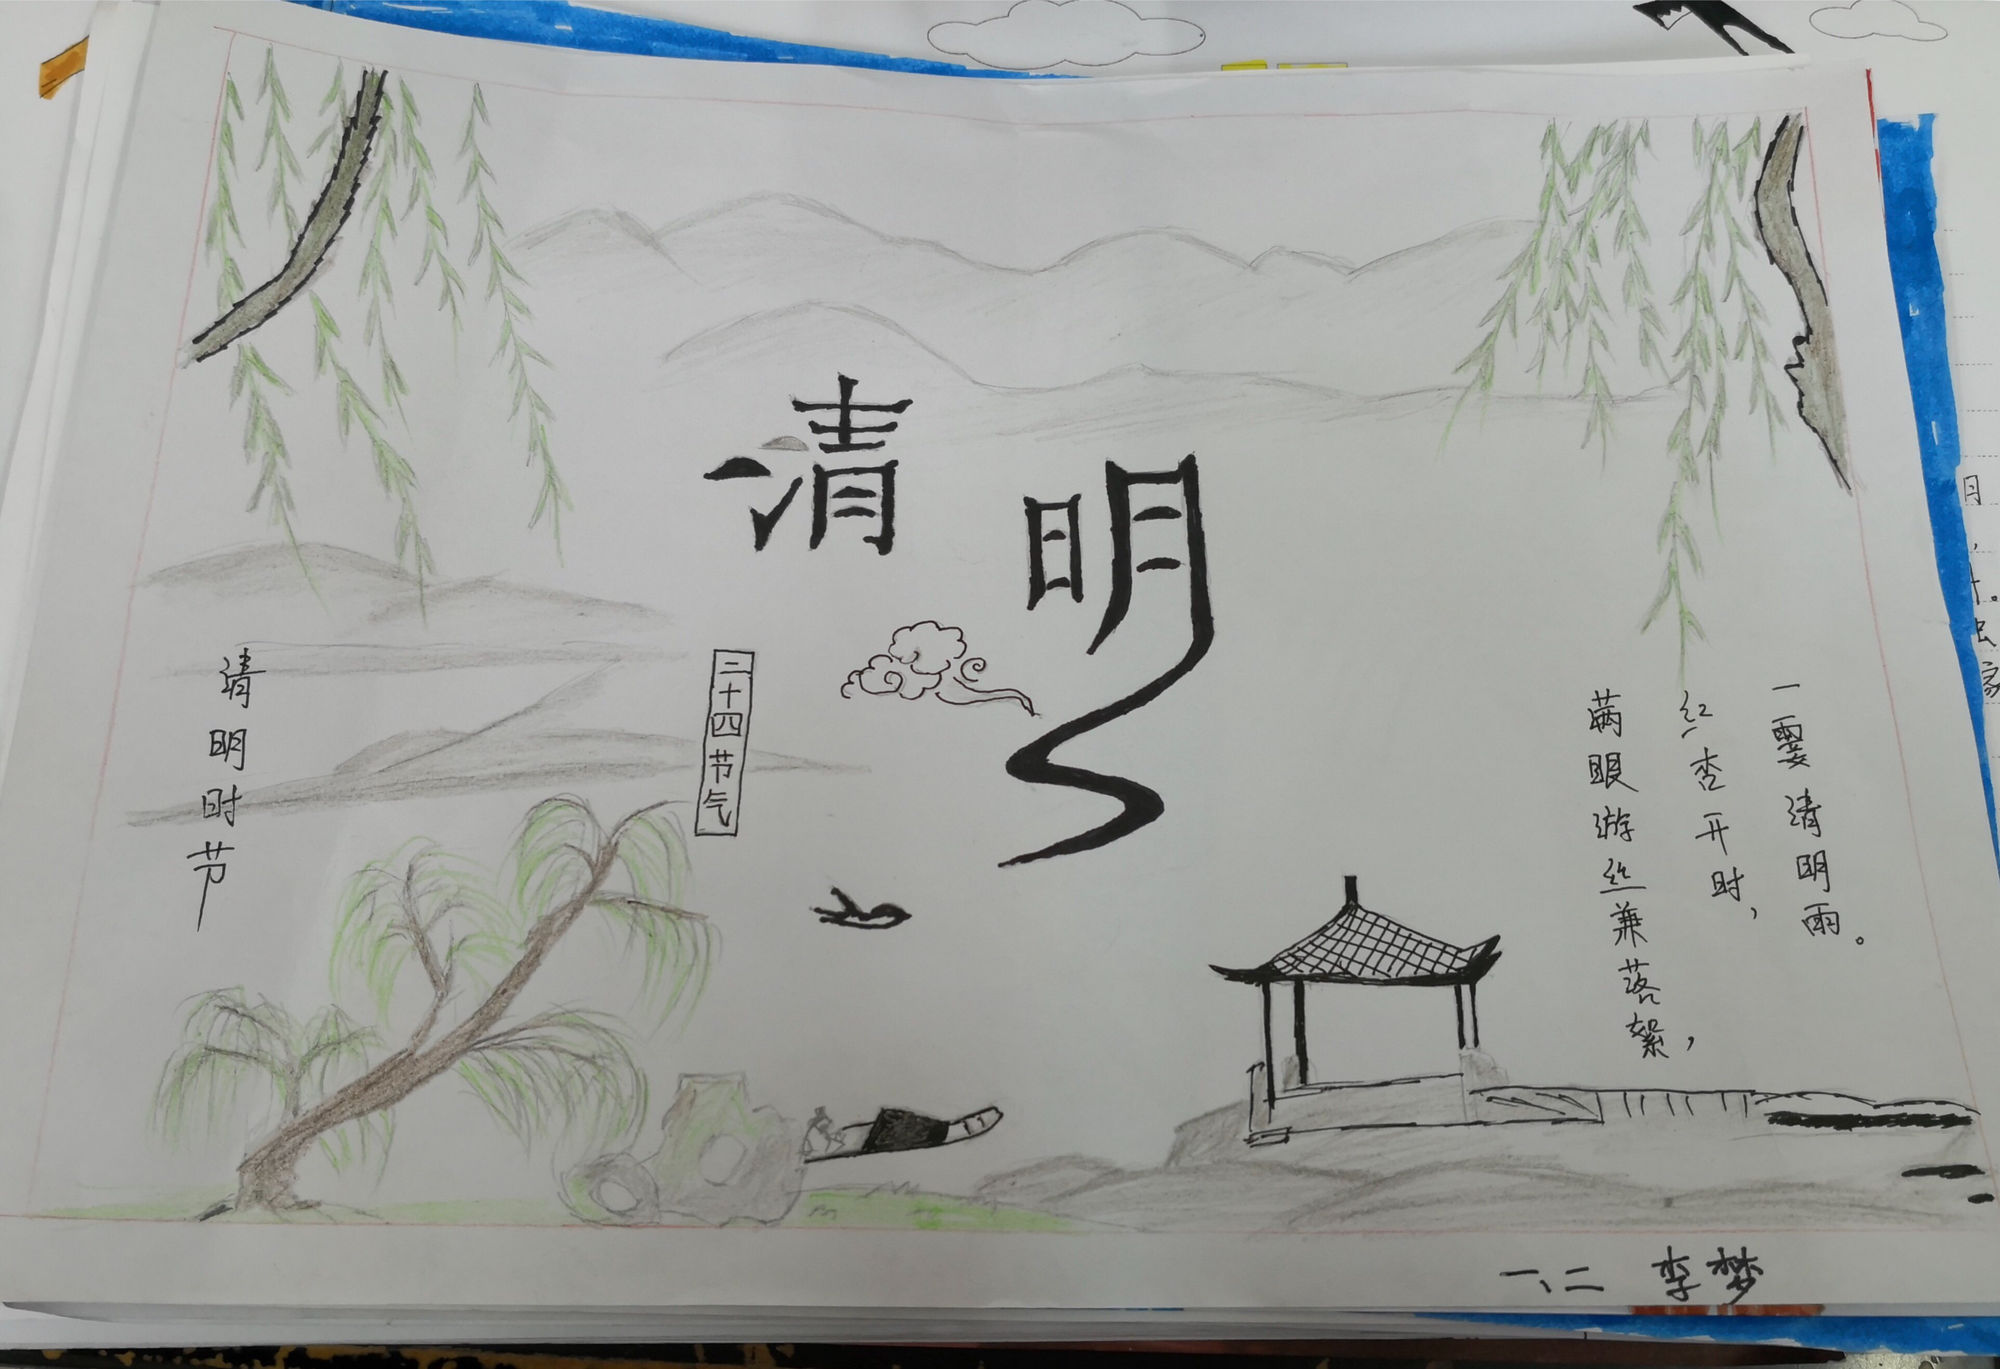 清明
二十四节气
清明时节
满眼游丝兼落絮，
红杏开时，
一霎清明雨。
一、二 李梦